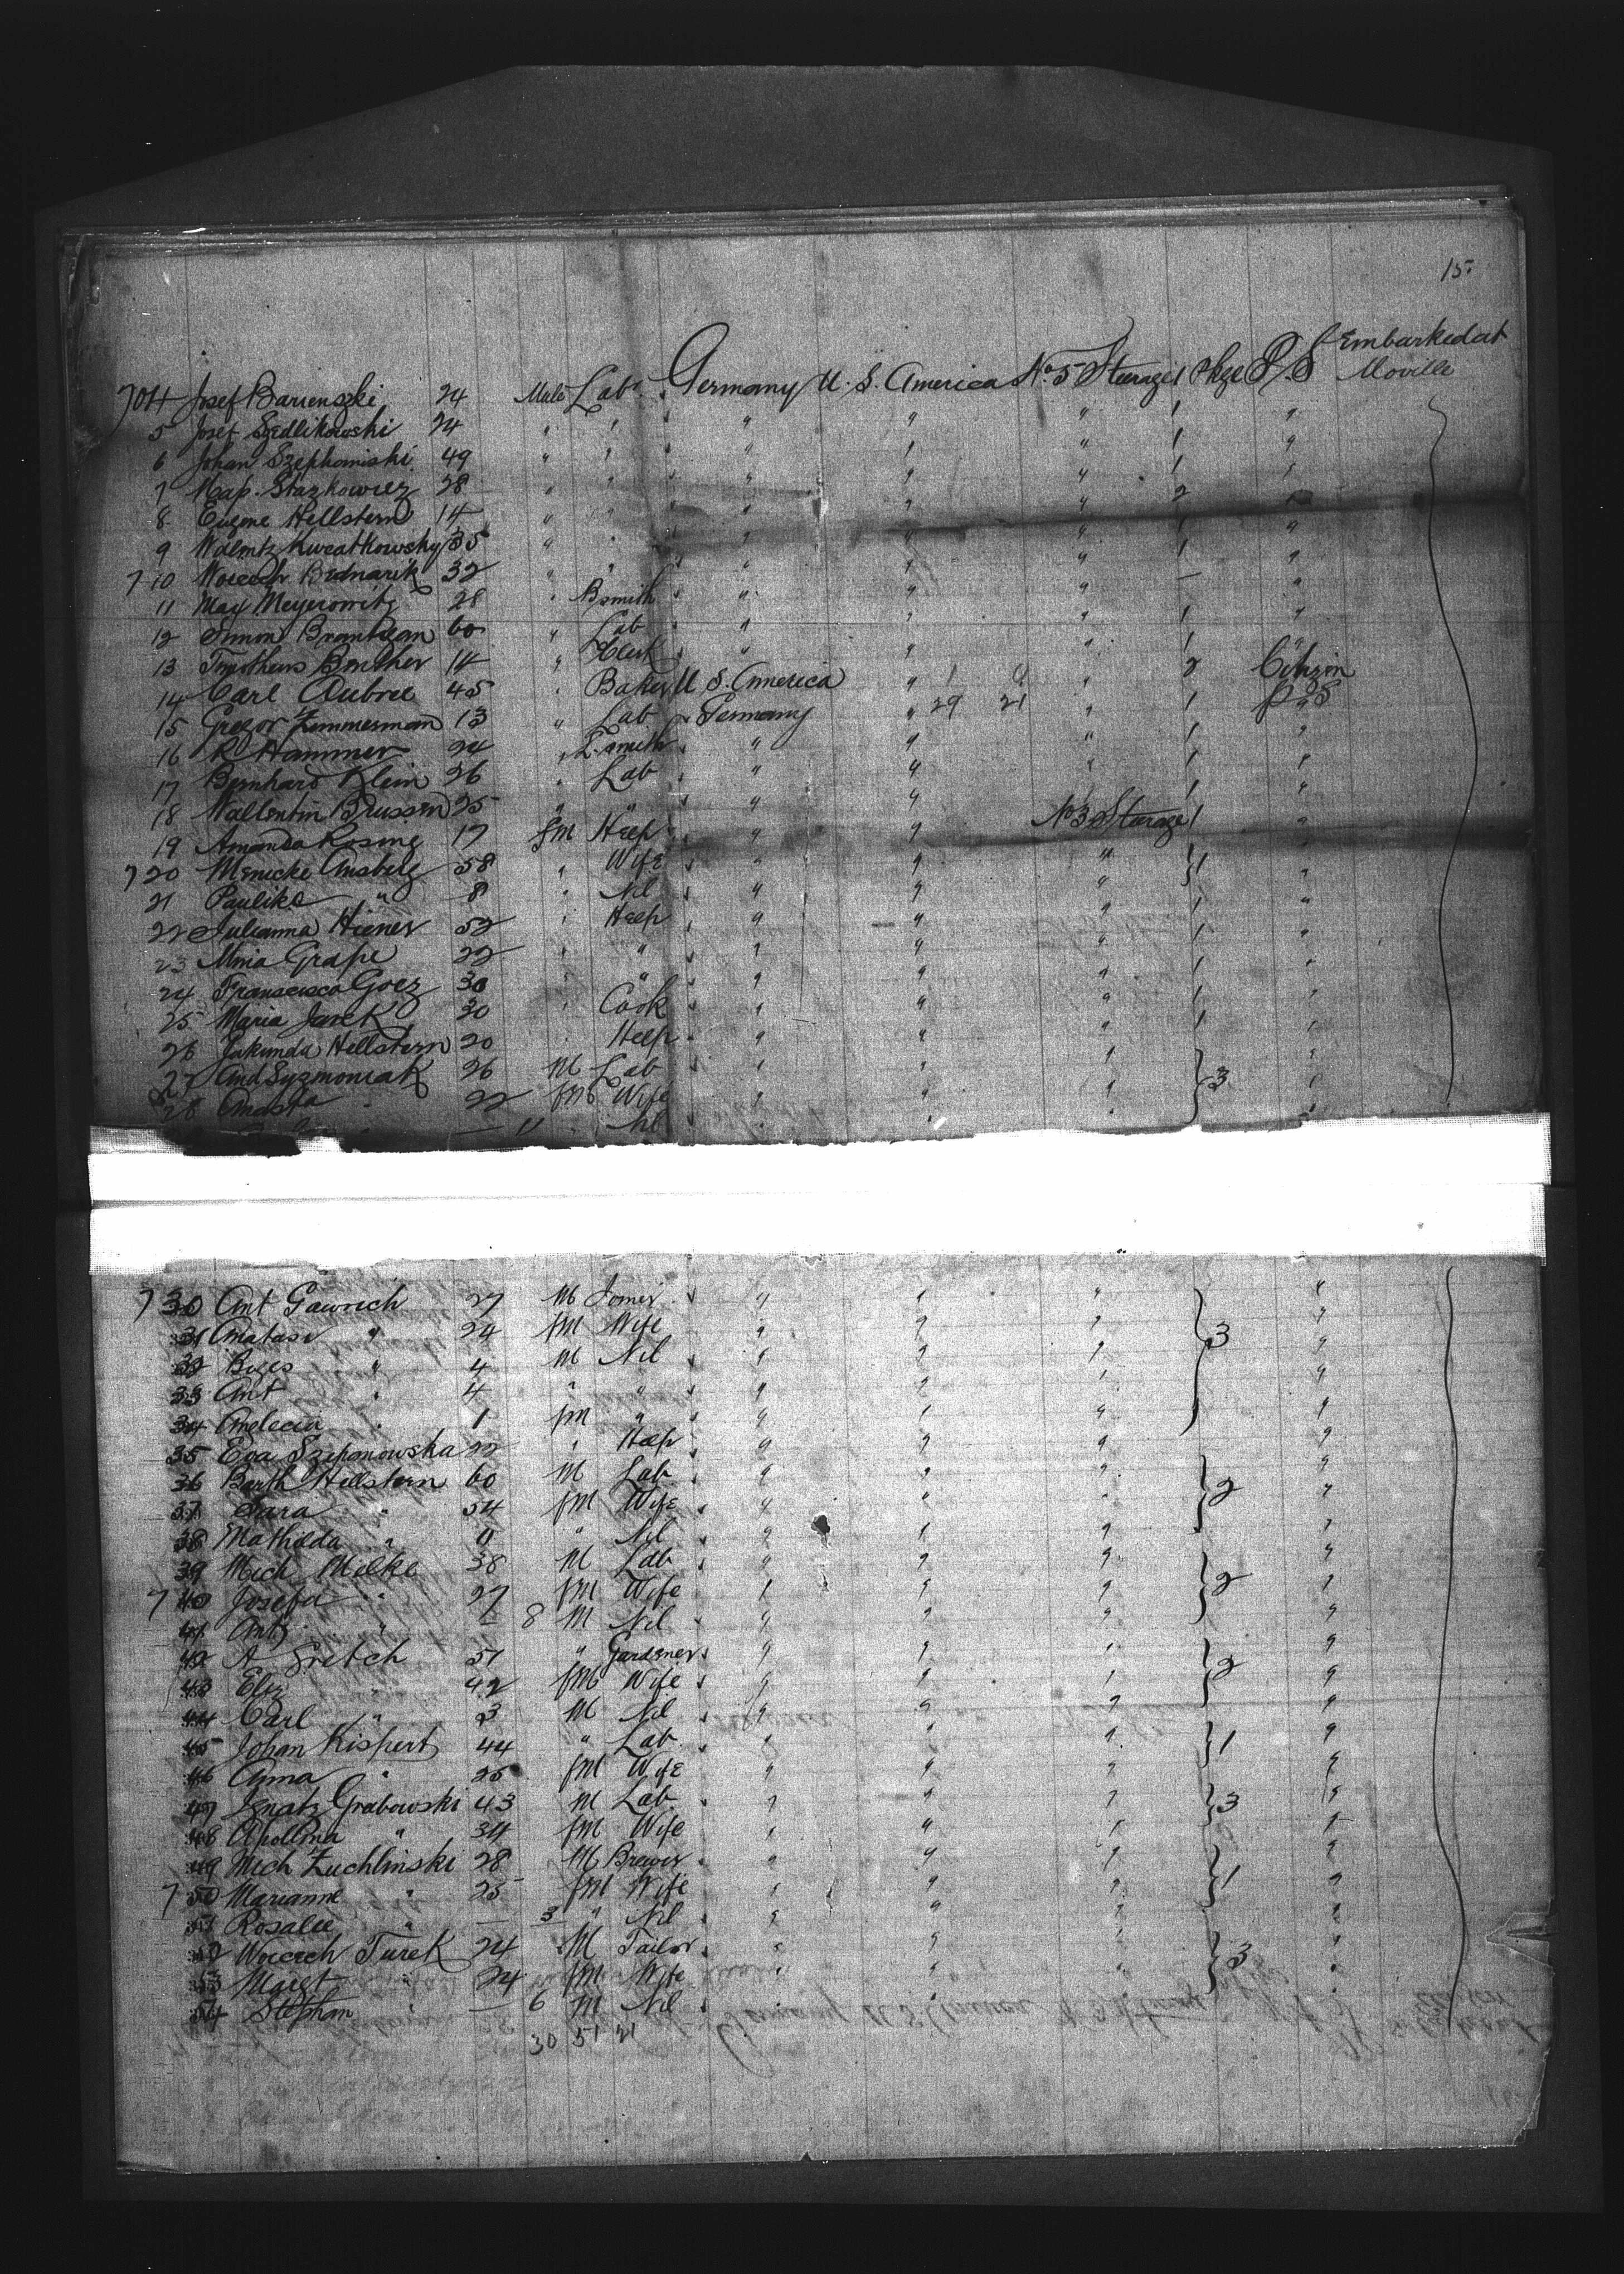 15.
704 Josef Barienski 24 Male Lab. Germany U. S. America No 5 Steerage 1 Pkge P. S Embarked at Moville
5 Josef Szedlikowski 24 " " " " " 1 "
6 Johan Szephomiski 49 " " " " " 1 "
7 Kap. Stazkowiez 28 " " " " " 1 "
8 Eugene Hellstern 14 " " " " " 2 "
9 Kweatkowsky 35 " " " " " 1 "
710 Woicech Bednarik 32 " " " " " 1 "
11 Max Meyerowitz 28 " Bsmith " " " — "
12 Simon 60 " Lab " " " 1 "
13 Timotheus 14 " Clerk " " " 1 "
14 Carl Aubree 45 " Baker U S. America " " 2 Citizin
15 Gregor Zimmerman 13 " Lab Germany " 29 21 " 1 P S
16 R Hammer 24 " L. smith " " " 1 "
17 Bernhard Klein 26 " Lab " " " 1 "
18 Wallentin Brussen 25 " " " " " 1 "
19 Amanda Rosing 17 fm Help " " No 3 Steerage 1 "
720 Menicke Ansberg 58 " Wife " " " } 1 "
21 Paulike " 8 " Nil " " " "
22 Julianna Hiener 52 " Help " " " 1 "
23 Mina Grape 22 " " " " " 1 "
24 Franscisca Goez 30 " " " " " 1 "
25 Maria Janek 30 " Cook " " " 1 "
26 Jakunda Hellstern 20 " Help " " " 1 "
27 And Syzmoniak 26 M Lab " " " } 3 "
28 Anasta " 22 fm Wife " " " "
— 11 " Nil
730 Ant Gawrich 27 M Joiner " " " } 3 "
31 Anatasi " 24 fm Wife " " " "
32 " 4 M Nil " " " "
33 Ant " 4 " " " " " "
34 Amelecia " 1 fm " " " " "
35 Eva Szepanowska 22 " Help " " " "
36 Barth Hellstern 60 M Lab " " " } 2 "
37 Sara " 54 fm Wife " " " "
38 Mathilda " 11 " Nil " " " "
39 Mich Melke 38 M Lab " " " } 2 "
740 Josefa " 27 fm Wife " " " "
41 Ant " — 8 M Nil " " " "
42 A Gretch 51 " Gardener " " " } 2 "
43 Eliz " 42 fm Wife " " " "
44 Carl " 3 M Nil " " " "
45 Johan Kispert 44 " Lab " " " } 1 "
46 Anna " 25 fm Wife " " " "
47 Ignatz Grabowski 43 M Lab " " " } 3 "
48 Apollina " 34 fm Wife " " " "
49 Mich Zuchlinski 28 M Brewer " " " } 1 "
750 Marianne " 25 fm Wife " " " "
51 Rosalie " — 3 " Nil " " " "
52 Woicech Turek 24 M Tailor " " " } 3 "
53 Margt " 24 fm Wife " " " "
54 Stephan " — 6 M Nil " " " "
30 51 21